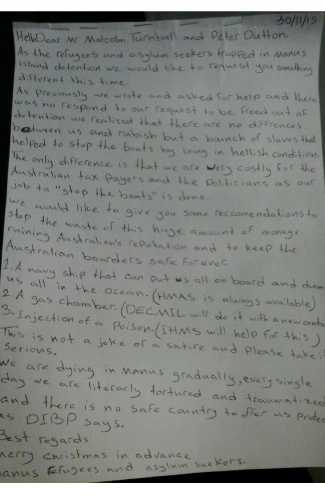 30/11/15
Hello Dear Mr Malcolm Turnbull and Peter Dutton
As the refugees and asylum seekers trapped in Manus
island detention we would like to request you something
different this time.
As previously we wrote and asked for help and there
was no respond to our request to be freed out of
detention we realised that there are no differences
between us and rubbish but a baunch of slaves that
helped to stop the boats by living in hellish condition
The only difference is that we are very costly for the
Australian tax payers and the Politicians as our
job to "stop the boats" is done.
we would like to give you some reccomendations to
stop the waste of this huge amount of money
ruining Australian's reputation and to keep the
Australian boarders safe forever
1. A navy ship that can put us all on board and dump
us all in the ocean. (HMAS is always available)
2. A gas chamber. (DECMIL will do it with a new contract
3. Injection of a poison. (IHMS will help for this)
This is not a joke or a satire and please take it
serious.
We are dying in Manus gradually, every single
day we are literarly tortured and traumatized
and there is no safe country to offer us protec
as DIBP says.
Best regards
merry christmas in advance
manus refugees and asylum seekers.